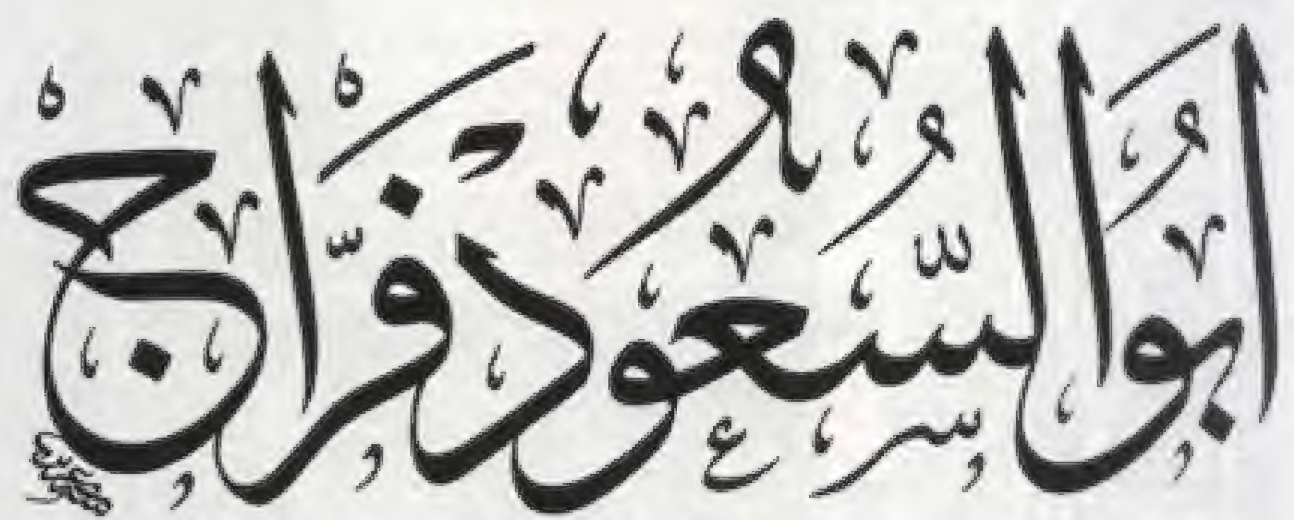 أبُو السُّعُود فَرَّاج